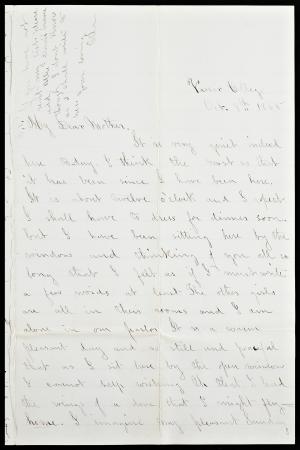 Vassar College
Oct. 8th 1865
My Dear Mother,
It is very quiet indeed
here today I think the most so that
it has been since I have been here.
It is about twelve o'clock and I expect
I shall have to dress for dinner soon.
but I have been sitting here by the
window and thinking of you all so
long that I felt as if I must write
a few words at least. The other girls
are all in their rooms and I am
alone in our parlor. It is a warm
pleasant day and so still and peaceful
that as I sit here by the open window
I cannot help wishing that I had
the wings of a dove that I might fly
home. I imagine my pleasant Sunday